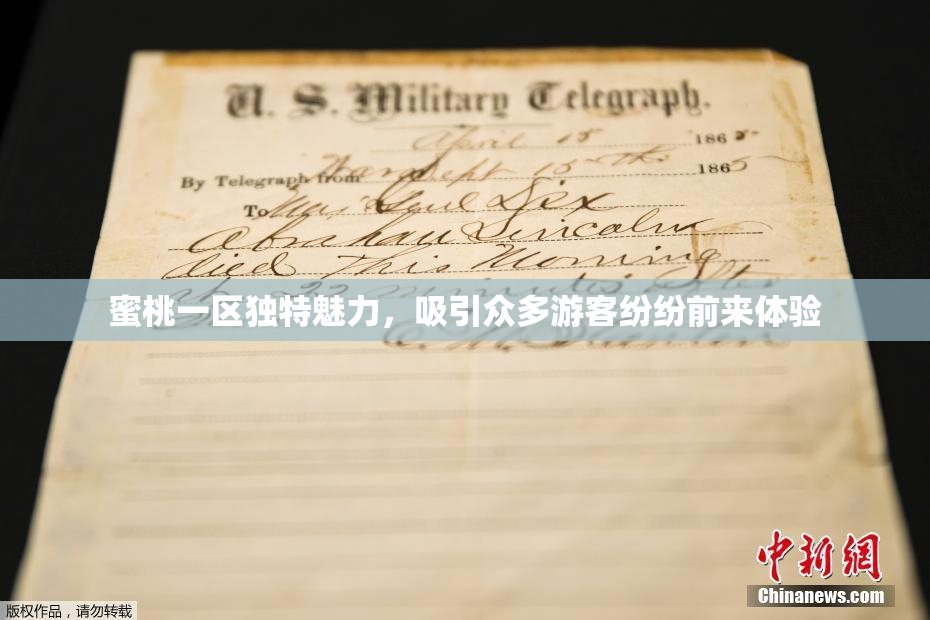 U. S. Military Telegraph.
April 15 1865
By Telegraph from War Dept 15th 1865
To Maj Genl Dix
Abraham Lincoln
died This Morning
22 minutes after
蜜桃一区独特魅力，吸引众多游客纷纷前来体验
E. M. Stanton
中新网
Chinanews.com
版权作品，请勿转载